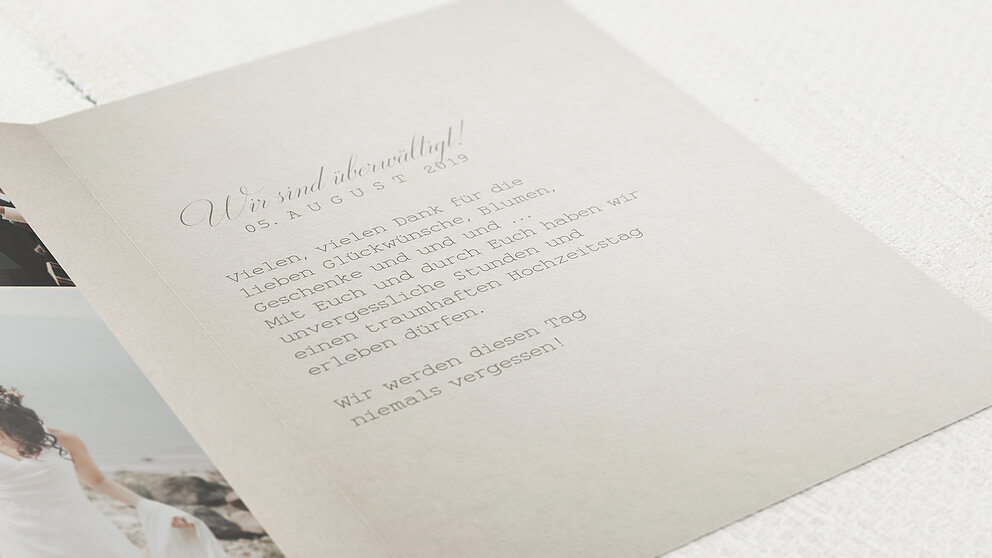 Wir sind überwältigt!
05. AUGUST 2019
Vielen, vielen Dank für die
lieben Glückwünsche, Blumen,
Geschenke und und und ...
Mit Euch und durch Euch haben wir
unvergessliche Stunden und
einen traumhaften Hochzeitstag
erleben dürfen.
Wir werden diesen Tag
niemals vergessen!